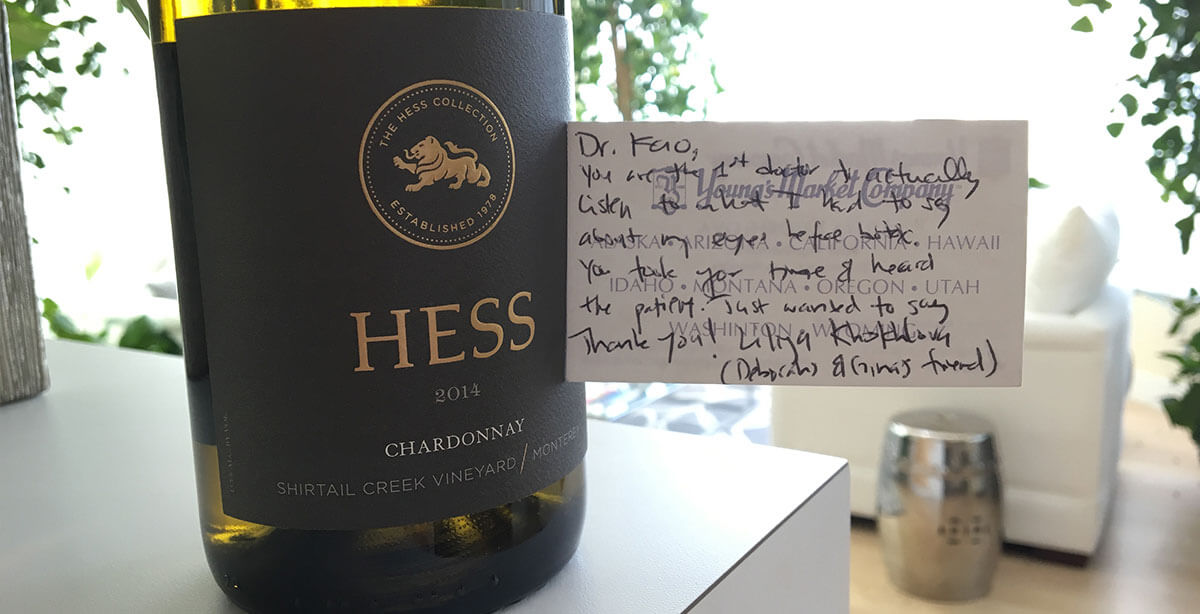 THE HESS COLLECTION
ESTABLISHED 1978
HESS
2014
CHARDONNAY
SHIRTAIL CREEK VINEYARD / MONTEREY
Dr. Kao,
You are the 1st doctor to actually
Young's Market Company
Listen to what I had to say
about my eyes before botox.
ALASKA • ARIZONA • CALIFORNIA • HAWAII
You took your time & heard
IDAHO • MONTANA • OREGON • UTAH
the patient. Just wanted to say
WASHINTON • WYOMING
Thank you! Liliya
(Deborah's & Gina's friend)